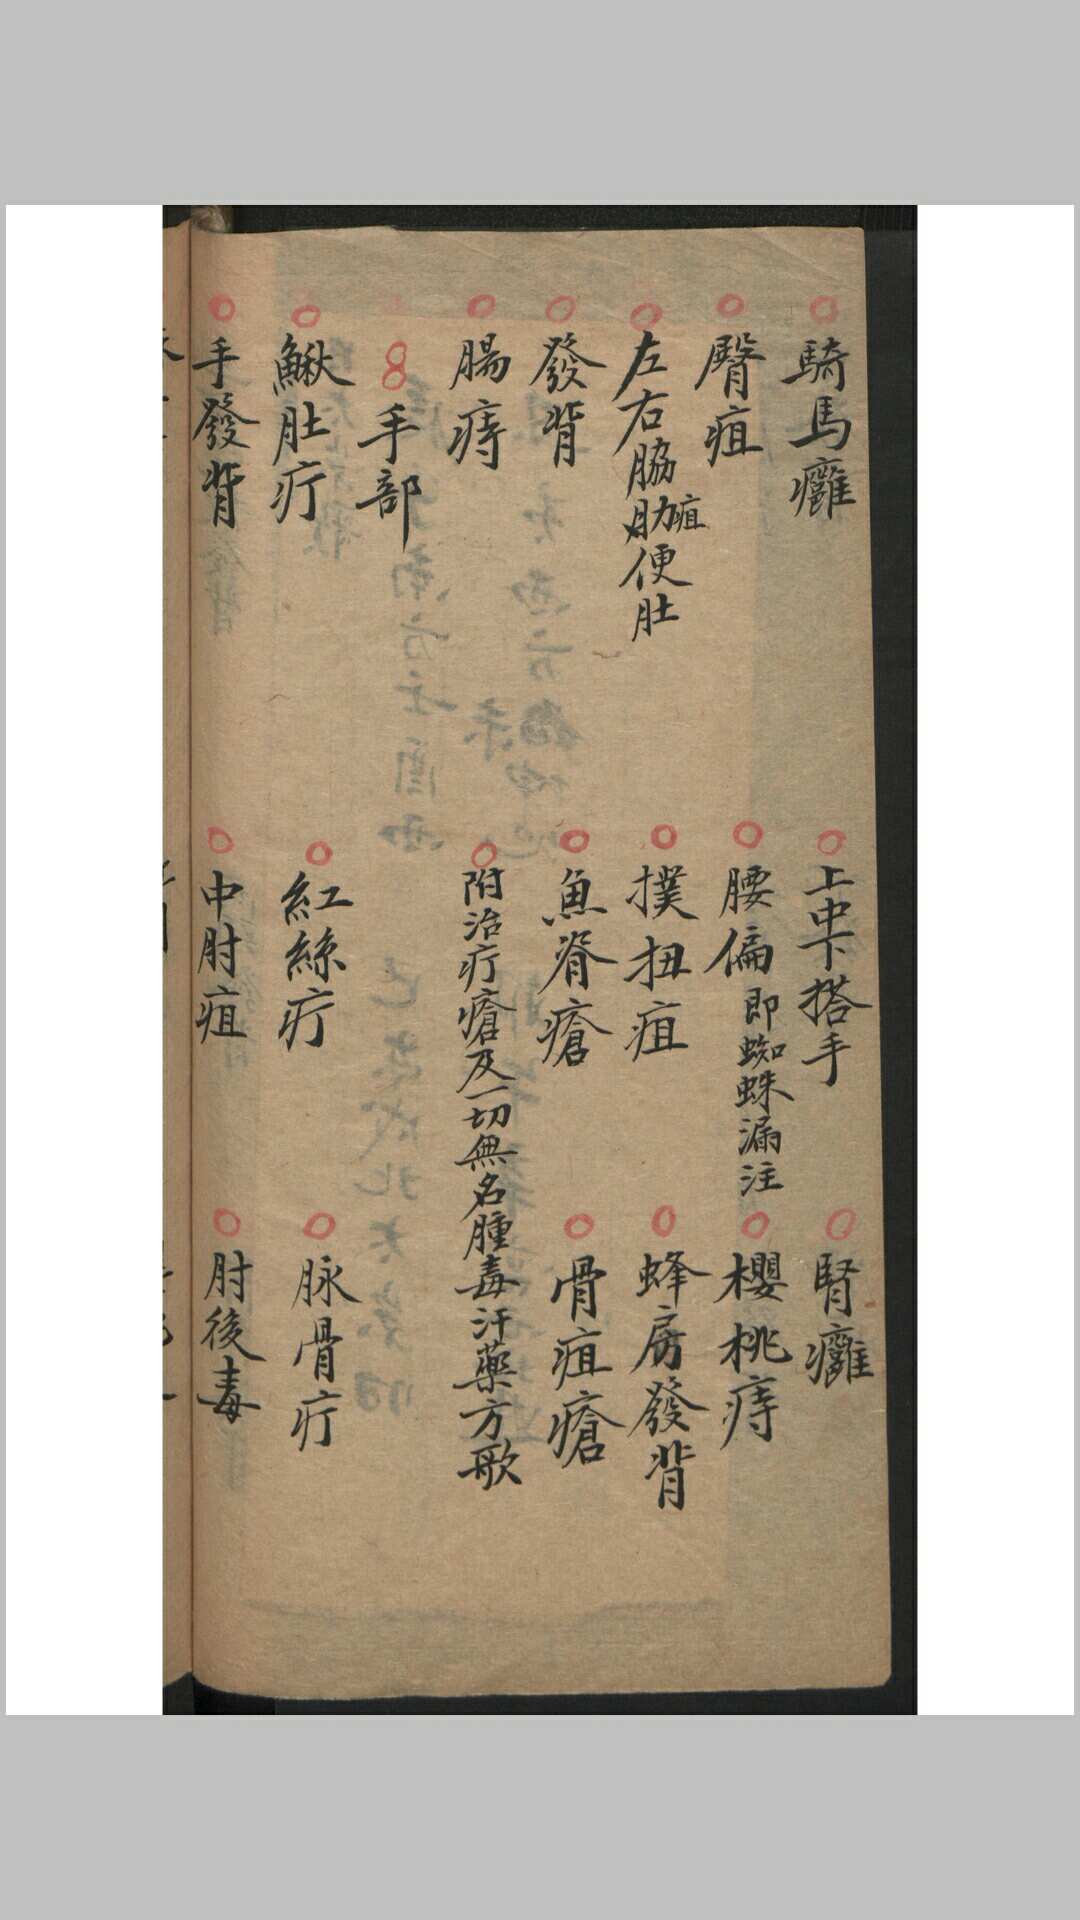 騎馬癰
上中下搭手
腎癰
臀疽
腰偏 即蜘蛛漏注
櫻桃痔
左右脇肋疽便肚
撲扭疽
蜂房發背
發背
魚脊瘡
骨疽瘡
腸痔
附治疔瘡及一切無名腫毒汗藥方歌
手部
鰍肚疔
紅絲疔
脉骨疔
手發背
中肘疽
肘後毒